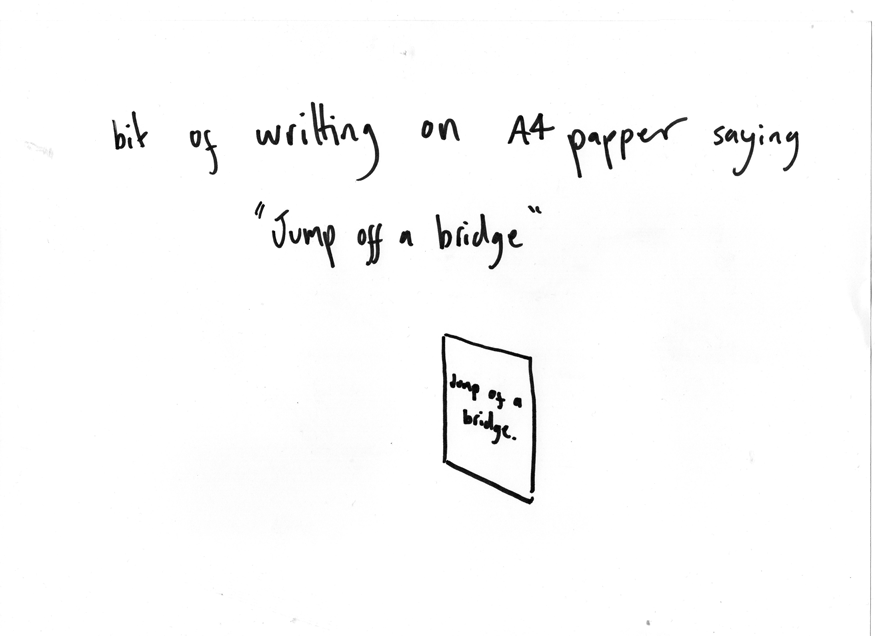 bit of writting on A4 papper saying
"Jump off a bridge"
Jump of a
bridge.